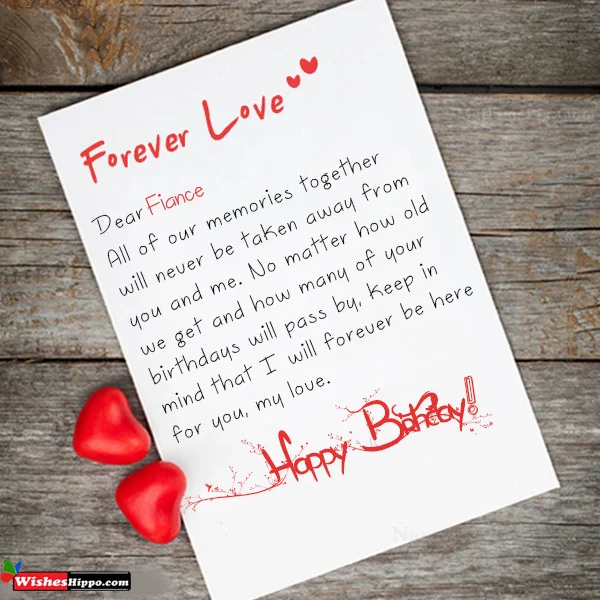 Forever Love
Dear Fiance
All of our memories together
will never be taken away from
you and me. No matter how old
we get and how many of your
birthdays will pass by, keep in
mind that I will forever be here
for you, my love.
Happy Birthday!
WishesHippo.com